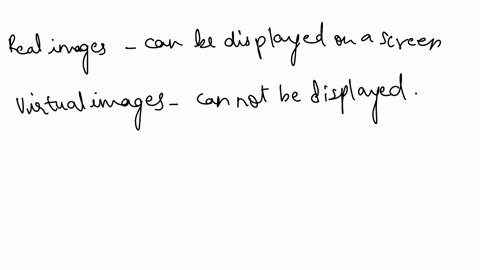 Real images - can be displayed on a screen
Virtual images - can not be displayed.